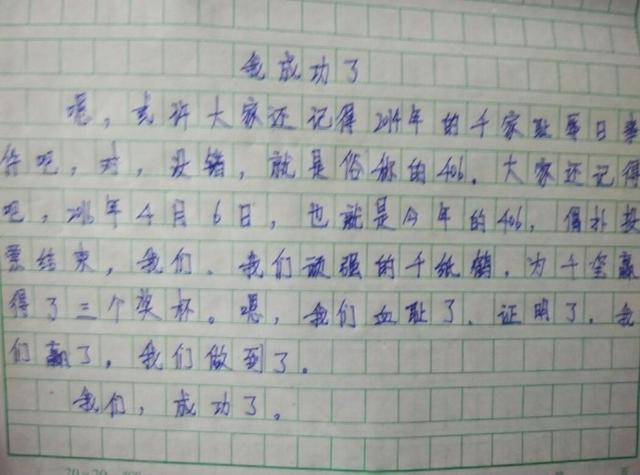 我成功了
嗯，或许大家还记得2014年的千家耻辱日事
件吧，对，没错，就是俗称的406。大家还记得
吧，2016年4月6日，也就是今年的406，偶扑投
票结束，我们、我们顽强的千纸鹤，为千玺赢
得了三个奖杯。嗯，我们血耻了、证明了、我
们赢了，我们做到了。
我们，成功了。
20×20